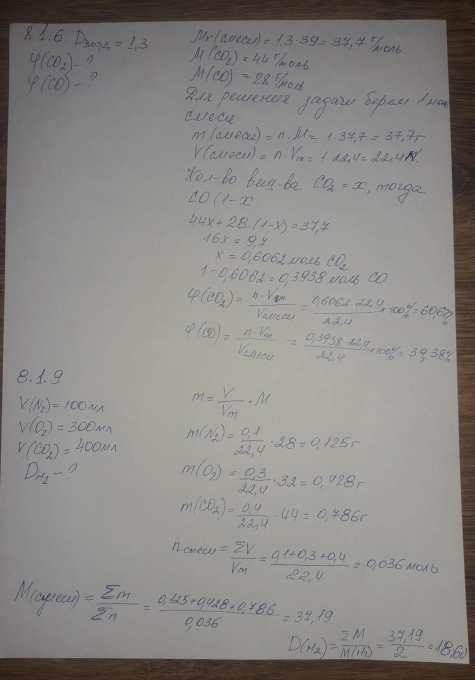 8.1.6 Dвозд = 1,3
φ(CO₂) - ?
φ(CO) - ?
Mr(смеси) = 1.3·39 = 37,7 г/моль
M(CO₂) = 44 г/моль
M(CO) = 28 г/моль
Для решения задачи берем 1 моль
смеси
m(смеси) = n·M = 1·37,7 = 37,7г
V(смеси) = n·Vm = 1·22,4 = 22,4 л
Кол-во вещ-ва CO₂ = x, тогда
CO (1-x
44x + 28·(1-x) = 37,7
16x = 9,7
x = 0,6062 моль CO₂
1 - 0,6062 = 0,3938 моль CO
φ(CO₂) = n·Vm / Vсмеси = 0,6062·22,4 / 22,4 · 100% = 60,62%
φ(CO) = n·Vm / Vсмеси = 0,3938·22,4 / 22,4 · 100% = 39,38%
8.1.9
V(N₂) = 100мл
V(O₂) = 300мл
V(CO₂) = 400мл
DH₂ - ?
m = V / Vm · M
m(N₂) = 0,1 / 22,4 · 28 = 0,125г
m(O₂) = 0,3 / 22,4 · 32 = 0,428г
m(CO₂) = 0,4 / 22,4 · 44 = 0,786г
n смеси = ΣV / Vm = 0,1+0,3+0,4 / 22,4 = 0,036 моль
M(смеси) = Σm / Σn = 0,125+0,428+0,786 / 0,036 = 37,19
D(H₂) = ΣM / M(H₂) = 37,19 / 2 = 18,60